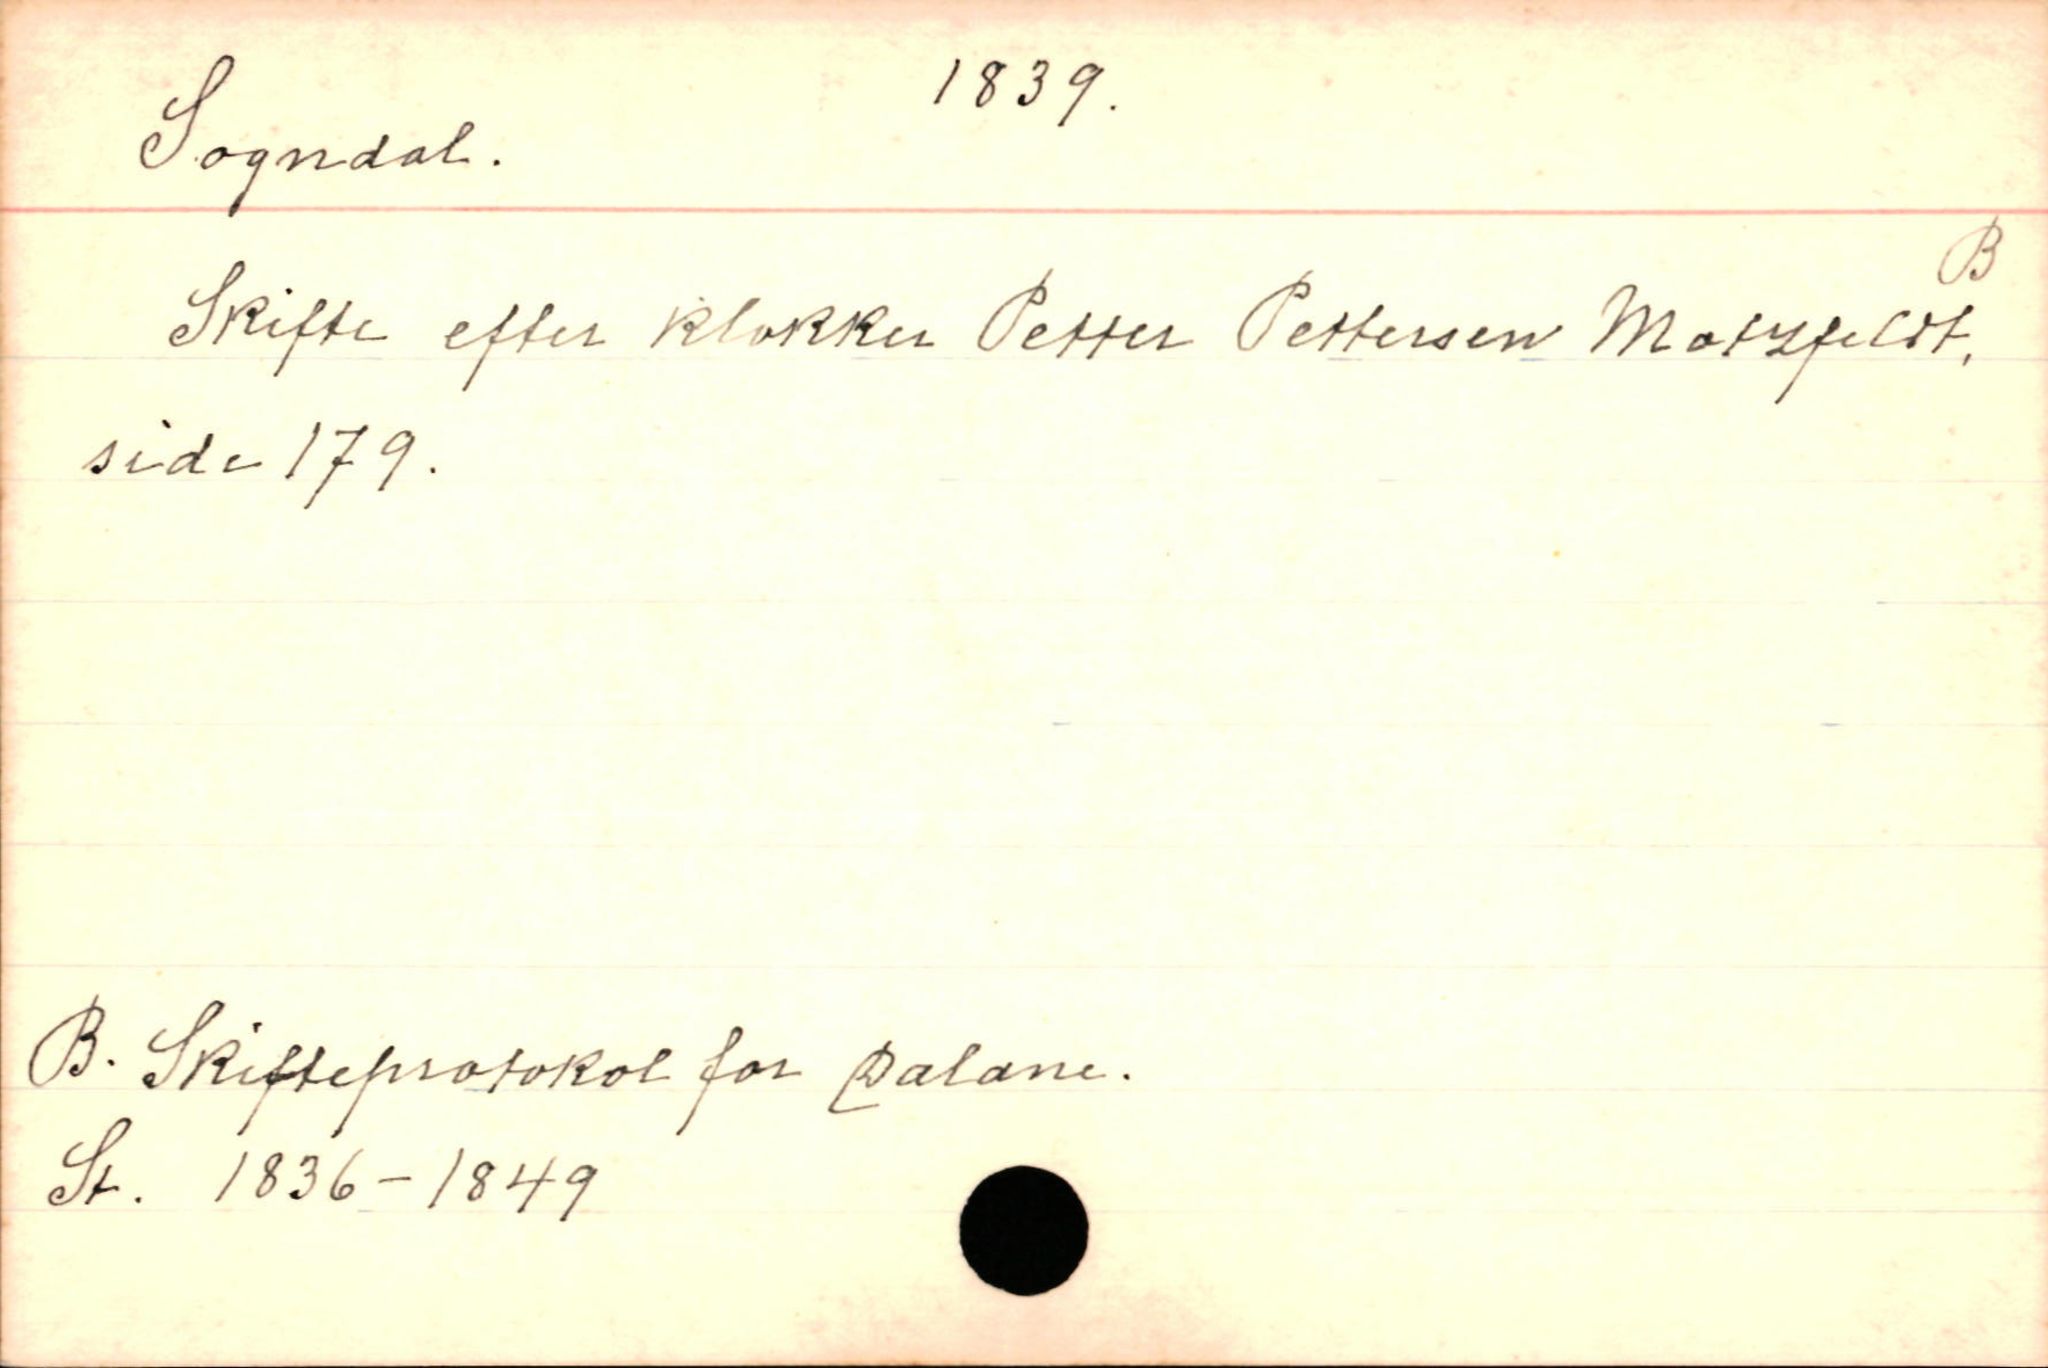 1839.
Sogndal.
B
Skifte efter klokker Petter Pettersen Motzfeldt,
side 179.
B. Skifteprotokol for Dalane.
St. 1836-1849